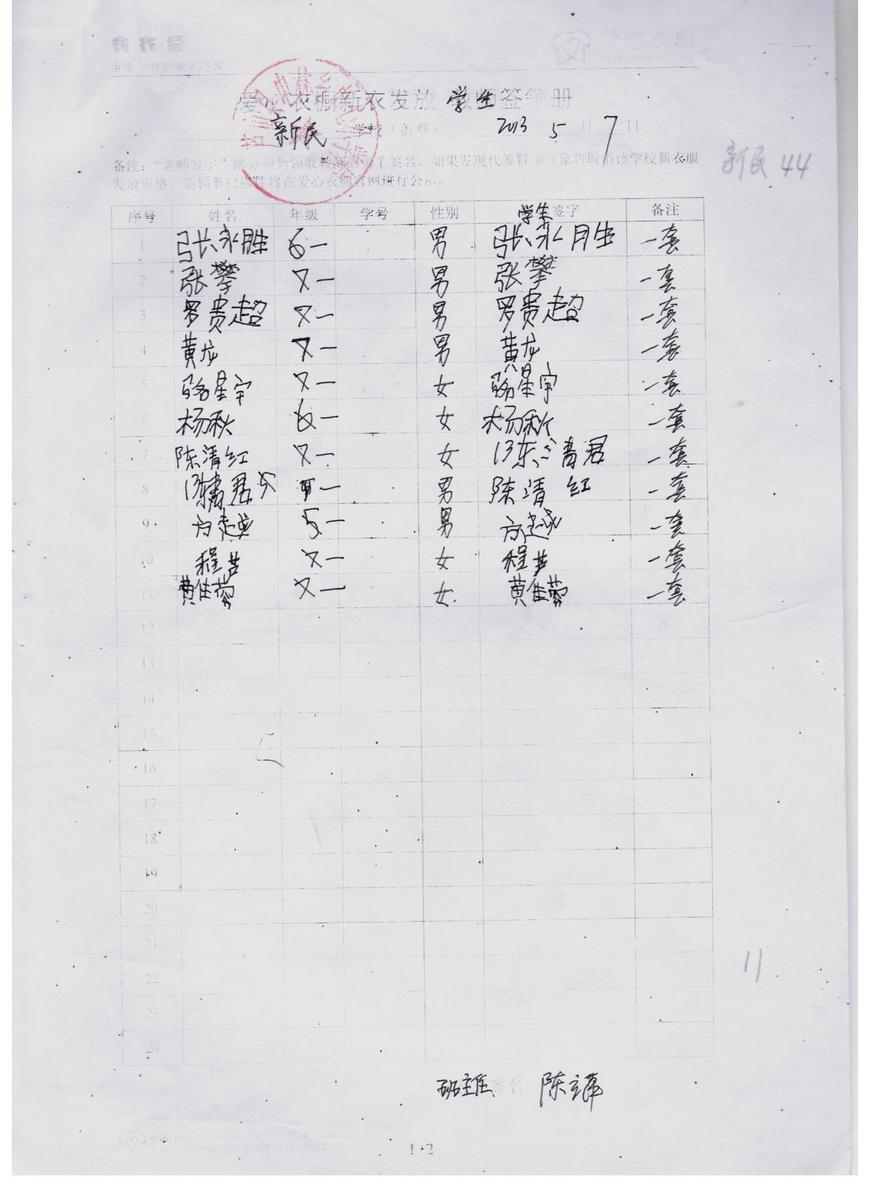 爱心衣橱新衣发放 学生签领册
新民 学校（盖章） 2013 5 7日
新民 44
备注：“老师签字”部分须为领取教师亲笔签名，如果发现代签冒领现象将取消该学校新衣服
发放资格，签领册扫描件将在爱心衣橱官网进行公示。
序号 姓名 年级 学号 性别 学生签字 备注
1 张永胜 6一 男 张永胜 一套
2 张攀 7一 男 张攀 一套
3 罗贵超 7一 男 罗贵超 一套
4 黄龙 7一 男 黄龙 一套
5 骆星宇 7一 女 骆星宇 一套
6 杨秋 6一 女 杨秋 一套
7 陈清红 7一 女 一套
8 一 男 陈清红 一套
9 方越 5一 男 方越 一套
10 程芦 7一 女 程芦 一套
11 黄佳蓉 7一 女 黄佳蓉 一套
12
13
14
15
16
17
18
19
20
21
22
23
24
11
班主任 签名 陈
1·2